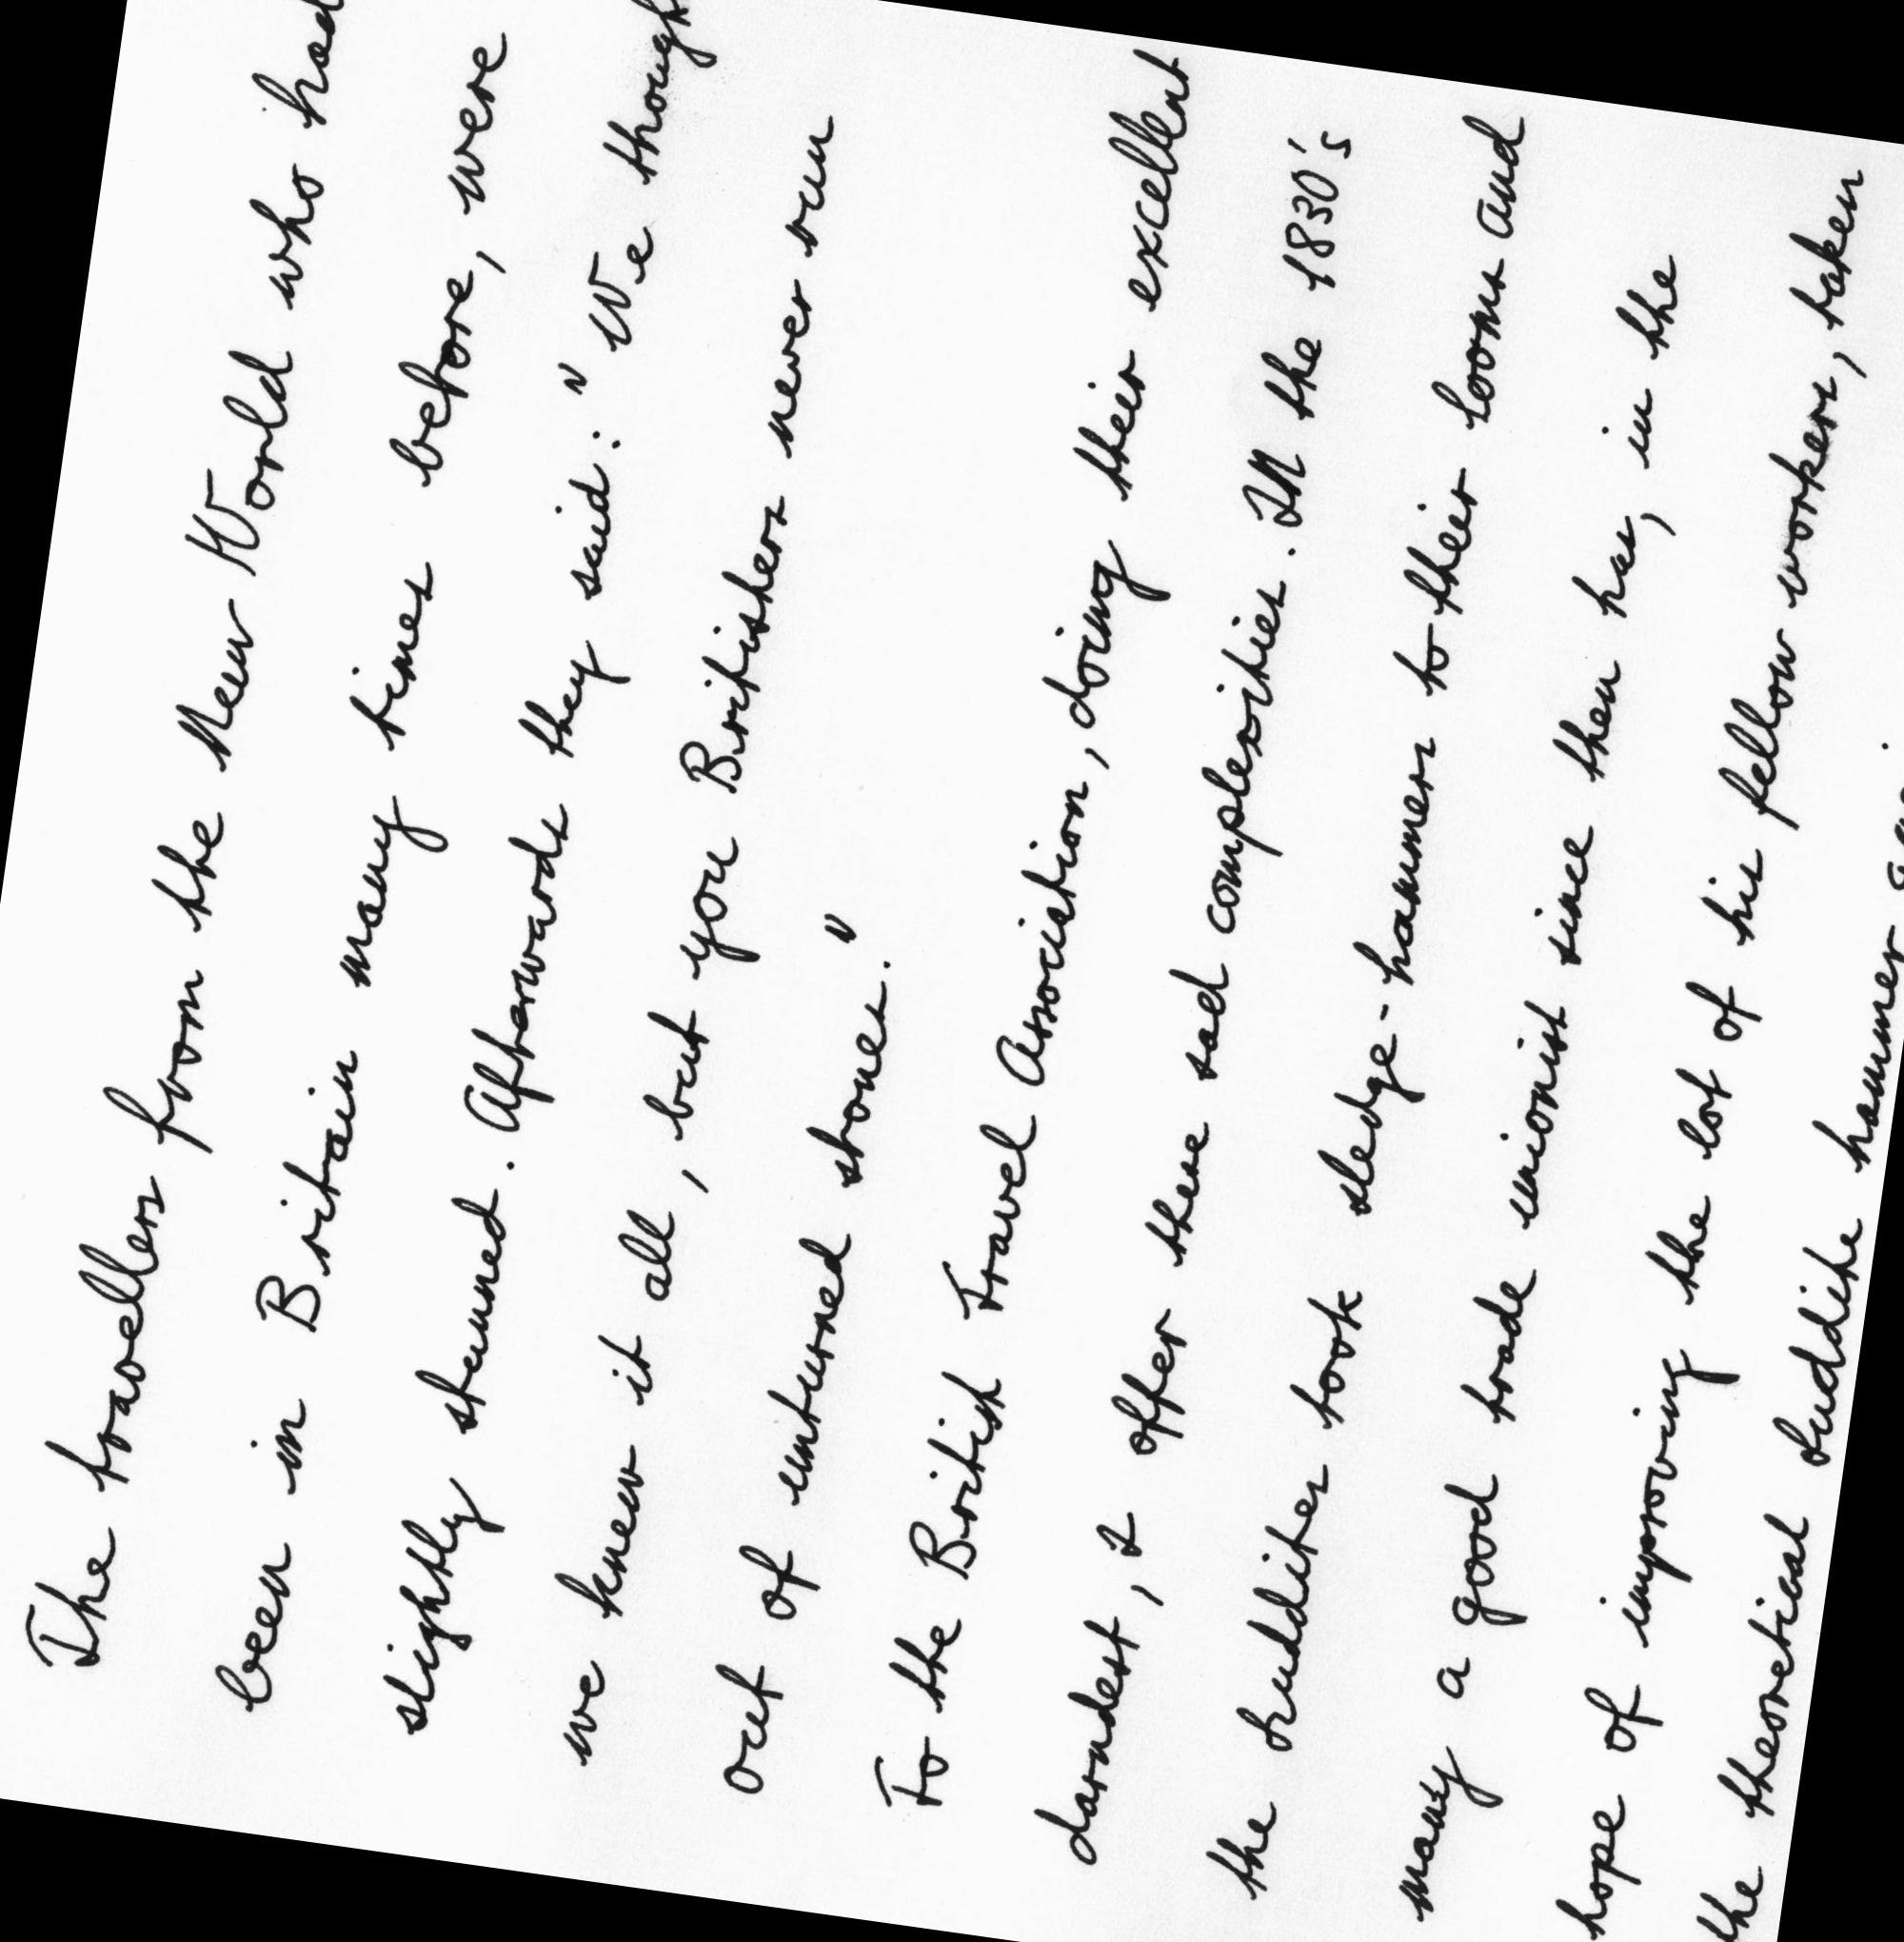 The travellers from the New World who had
been in Britain many times before, were
slightly stunned. Afterwards they said: "We though
we knew it all, but you Britishers never run
out of unturned stones."
To the British Travel Association, doing their excellent
darndest, I offer these sad complexities. In the 1830's
the Luddites took sledge-hammers to their looms and
many a good trade unionist since then has, in the
hope of improving the lot of his fellow workers, taken
the theoretical Luddite hammer